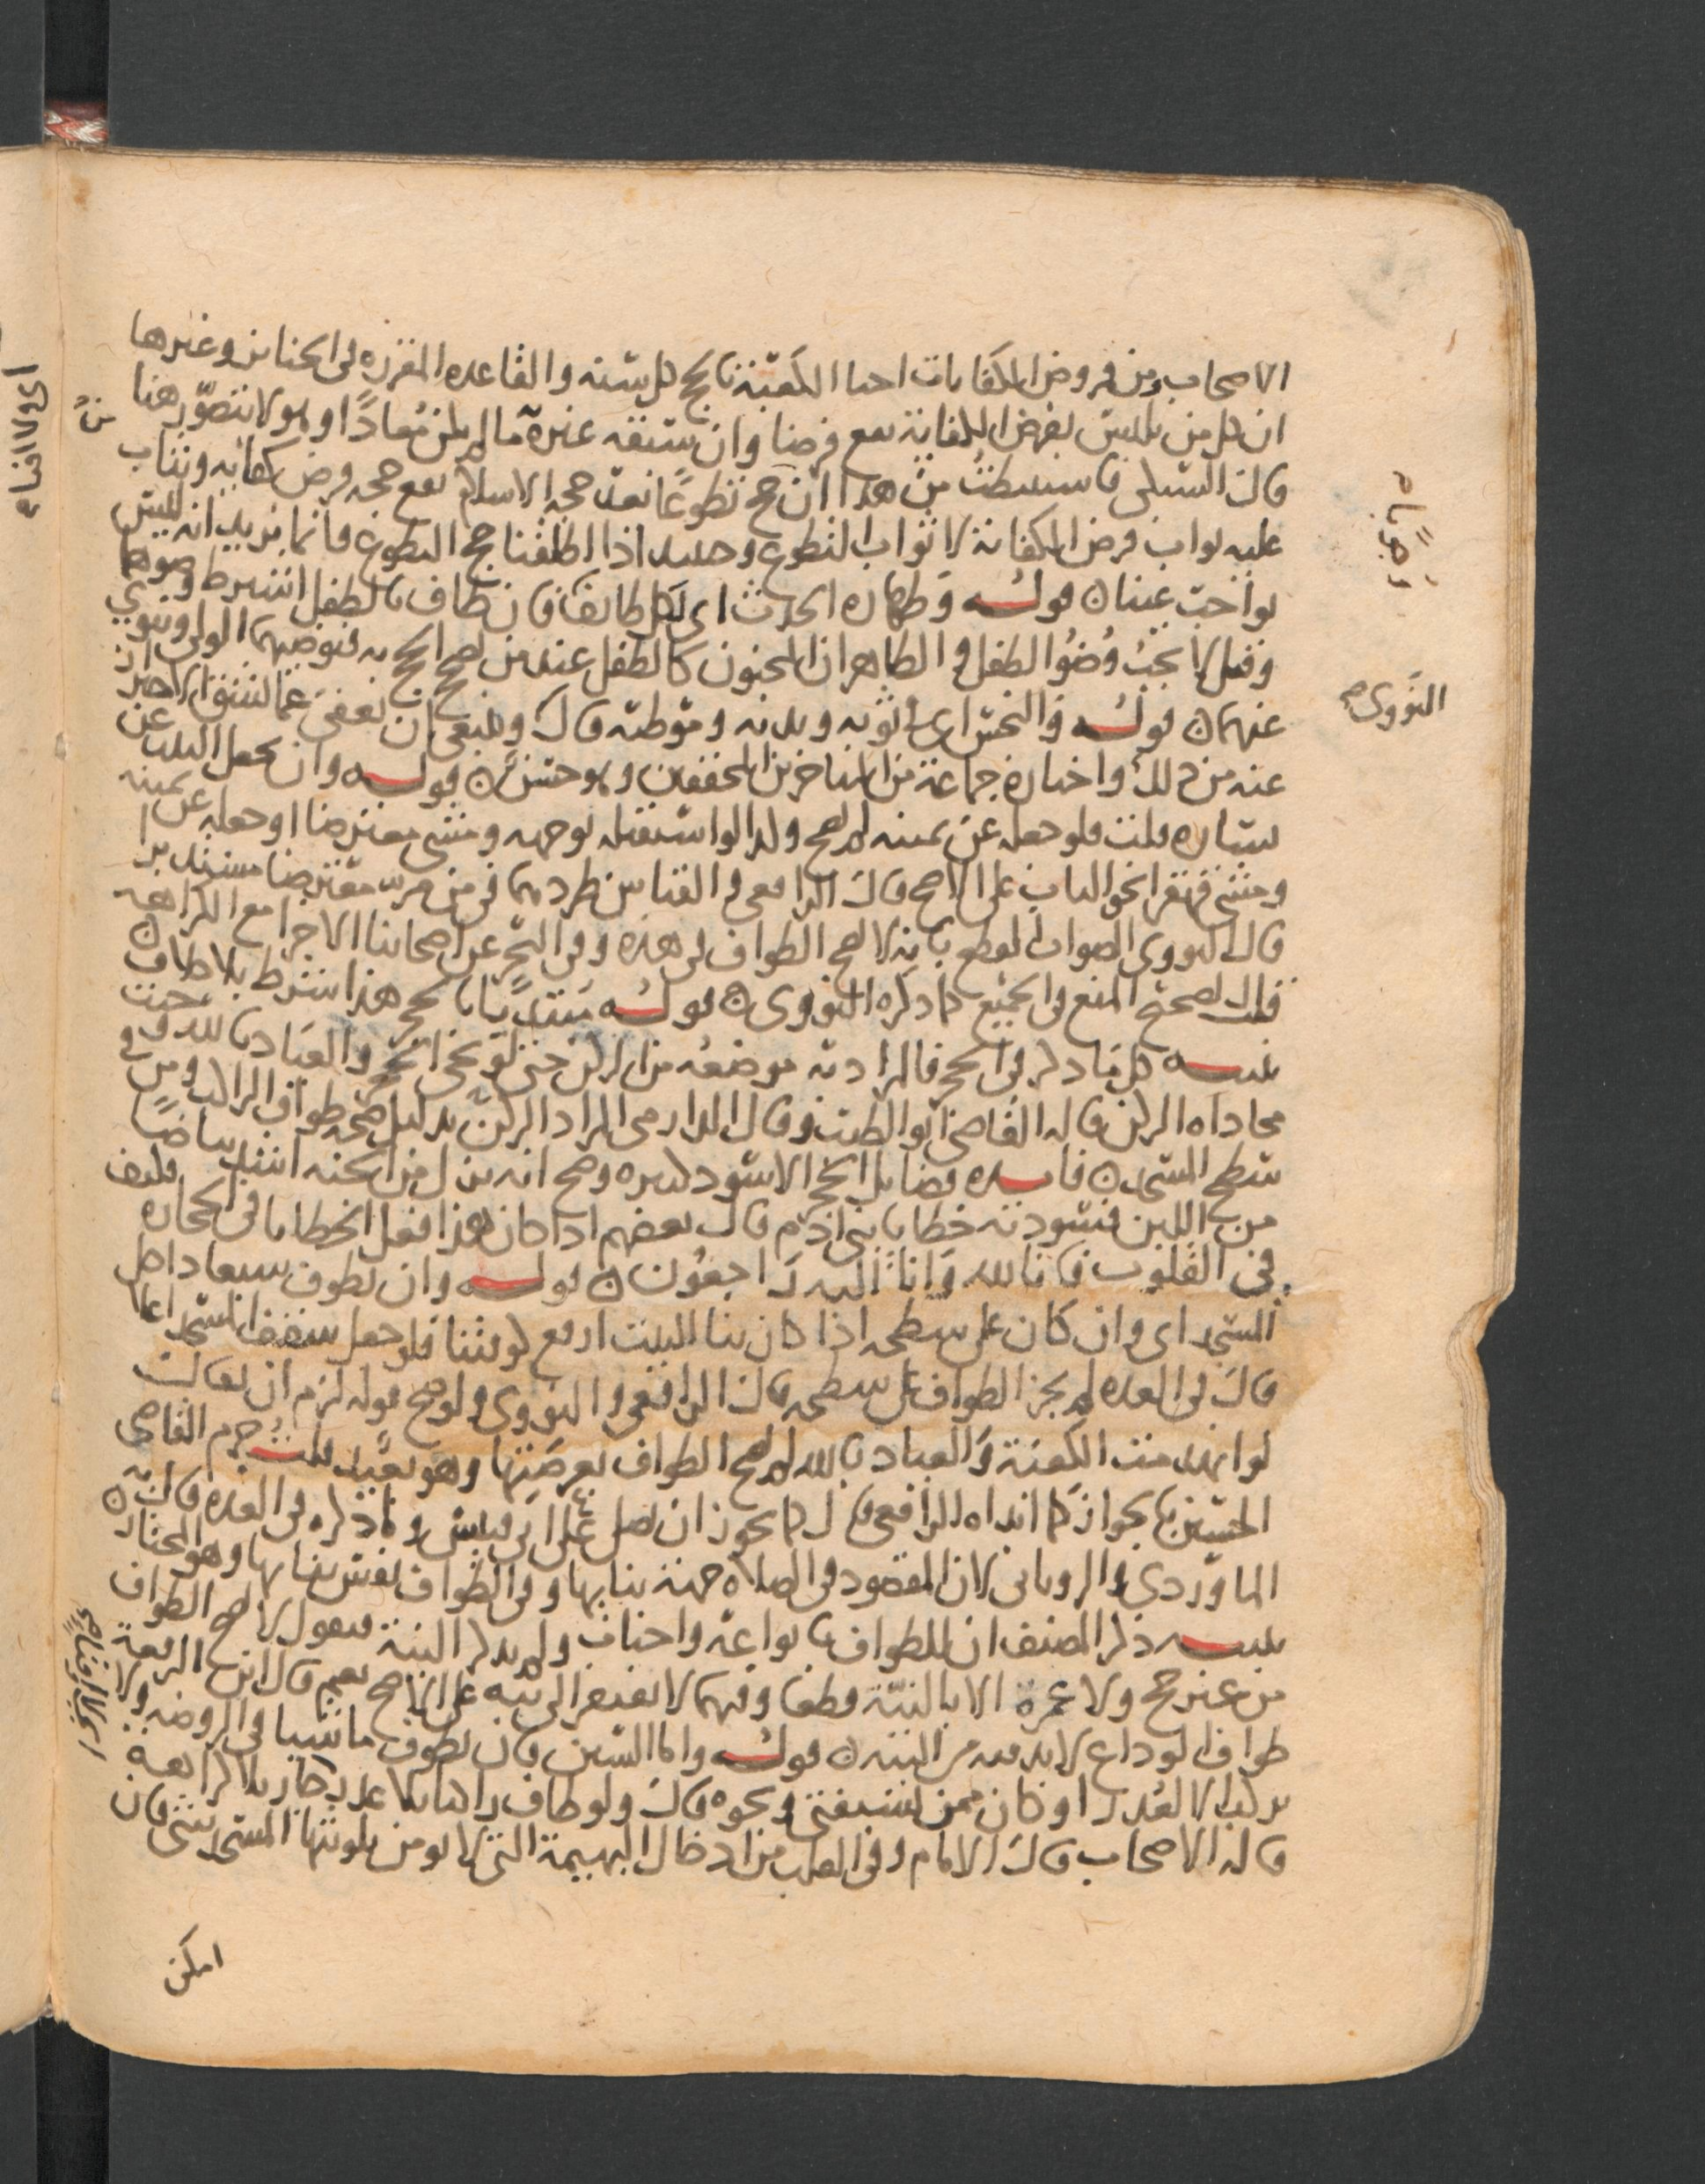 الاصحاب ومن فروض الكفايات احيا الكعبة بالحج كل سنة والقاعده المقرره في الجنايز وغيرها
ان كل من تلبس بفرض الكفاية يقع فرضا وان سبقه غيره ما لم يكن مُعادًا وهو لا يتصوّر هنا
قال السبكي فاستنبطتُ من هذا ان من حج تطوعًا بعد حجه الاسلام يقع حجه فرض كفايه ويثاب
عليه ثواب فرض الكفاية لا ثواب التطوع وحينيذ اذا اطلقنا حج التطوع فانما نريد انه ليس
بواجب عينا ن قوله وطهاره الحدث اي لكل طايف فان طاف بالطفل اشترط وضوها
وقيل لا يجبُ وُضوُ الطفل والظاهر ان المجنون كالطفل عند من يصحح الحج به فيوضيهما الولي وينوي
عنهما ن قوله والنجس اي في ثوبه وبدنه وموطئه قال النووي وينبغي ان يعفى عما يشق الاحتراز
عنه من ذلك واختاره جماعة من المتاخرين المحققين وهو حسن ن قوله وان يجعل البيت عن
يساره قلت فلو جعله عن يمينه لم يصح وكذا لو استقبله بوجهه ومشى معترضا او جعله عن يمينه
ومشى قهقرا نحو الباب على الاصح قال الرافعي والقياس طردهما في من مر معترضا مستدبرا
قال النووي الصواب القطع بانه لا يصح الطواف في هذه وفي البحر عن اصحابنا الاجزا مع الكراهه
قلت لصحح المنع في الجميع كما ذكره النووي ن قوله مُبتديًا بالحجر هذا شرط بلا خلاف ن
تنبيه كل ما ذكر في الحجر فالمراد به موضعه من الركن حتى لو نحي الحجر والعياذ بالله وجبت
محاداه الركن قاله القاضي ابو الطيب وقال الدارمي المراد الركن بدليل صحه طواف الراكب ومن في
سطح المسجد ن فايده فضايل الحجر الاسود كثيره وصح انه نزل من الجنه اشد بياضًا
من اللبن فسودته خطايا بني ادم قال بعضهم اذا كان هذا فعل الخطايا في الحجاره فكيف
في القلوب فانا لله وَانا اليه رَاجعُون ن قوله وان يطوف سبعا داخل
المسجد اي وان كان على سطحه اذا كان بنا البيت ارفع كيومنا فلو جعل سقف المسجد اعلا
قال في العده لم يجز الطواف على سطحه قال الرافعي والنووي ولو صح قوله لزم ان يقال
لو انهدمت الكعبة وَالعياذ بالله لم يصح الطواف بعرصتها وهو بعيد قلتُ جزم القاضي
الحسين بالجواز كما ابداه الرافعي قال كما يجوز ان يصلي على ابي قبيس وما ذكره في العده قال به
الماوردي والروياني لان المقصود في الصلاه جهة بنايها وفي الطواف نفس بنايها وهو المختار ن
تنبيه ذكر المصنف ان للطواف بانواعه واجبات ولم يذكر النية فنقول لا يصح الطواف
من غير حج ولا عمرة الا بالنيّة قطعا وفيهما لا يفتقر الى نيه على الاصح نعم قال ابن الرفعة
طواف الوداع لا بد فيه من النية ن قوله واما السنن فان يطوف ماشيا في الروضة ولا
يركب الا لعُذر او كان ممن يستفتى ونحوه قال ولو طاف راكبا بلا عذر جاز بلا كراهه
قاله الاصحاب قال الامام وفي القلب من ادخال البهيمة التي لا يومن تلويثها المسجد شي فان
امكن
النووي صح